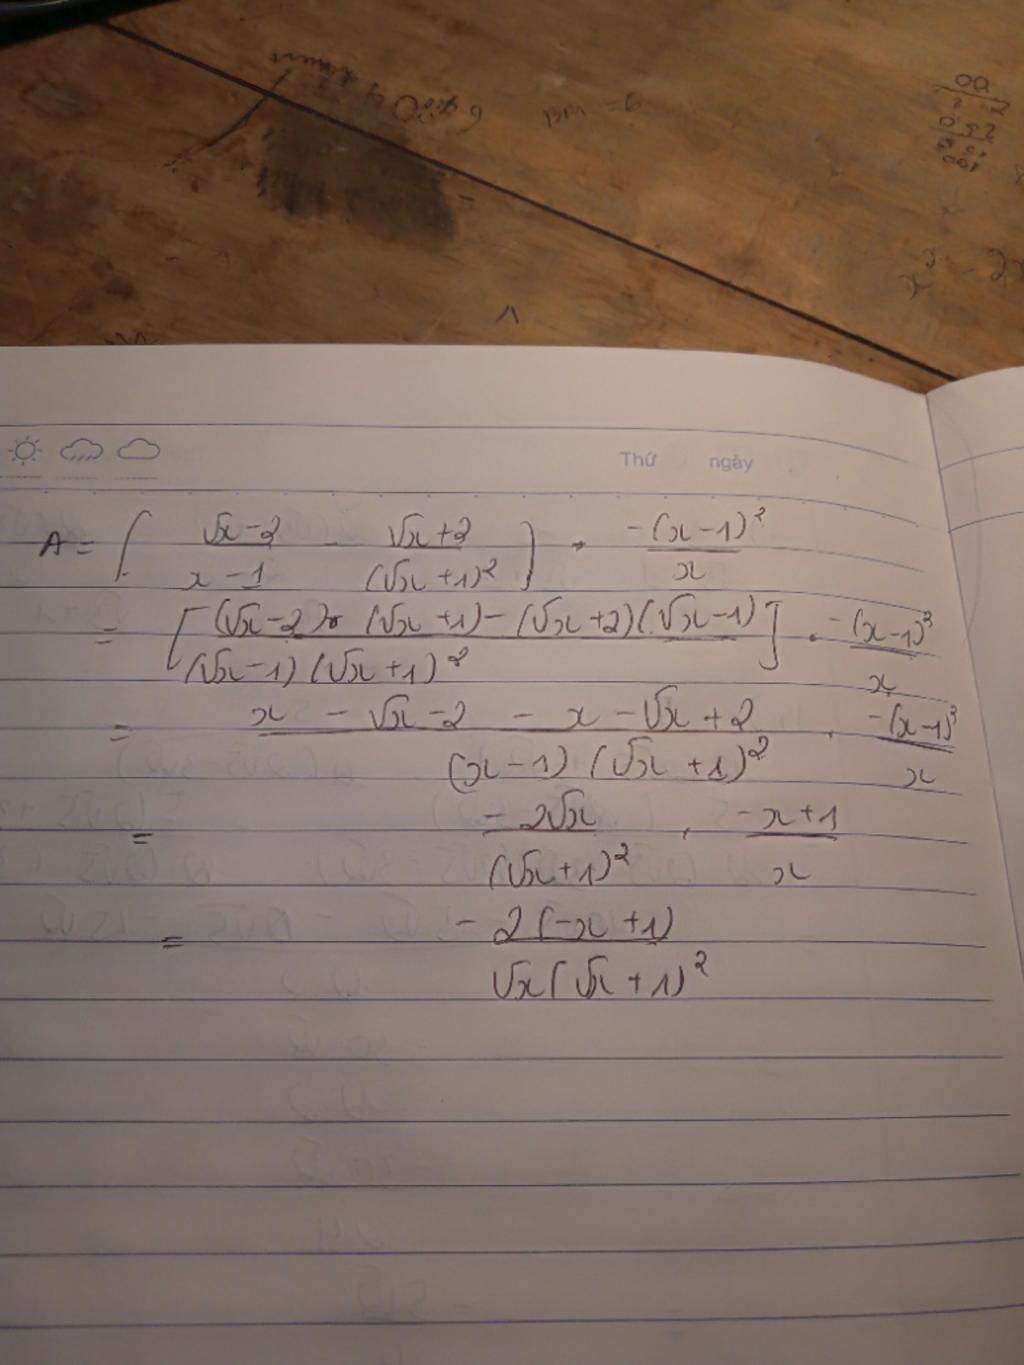 BM = 9
Thứ ngày
A = [ (√x-2)/(x-1) - (√x+2)/(√x+1)² ] · -(x-1)²/x
= [ ((√x-2)(√x+1)-(√x+2)(√x-1))/((√x-1)(√x+1)²) ] · -(x-1)²/x
= (x - √x-2 - x-√x+2)/((x-1)(√x+1)²) · -(x-1)²/x
= -2√x/(√x+1)² · (-x+1)/x
= -2(-x+1)/(√x(√x+1)²)